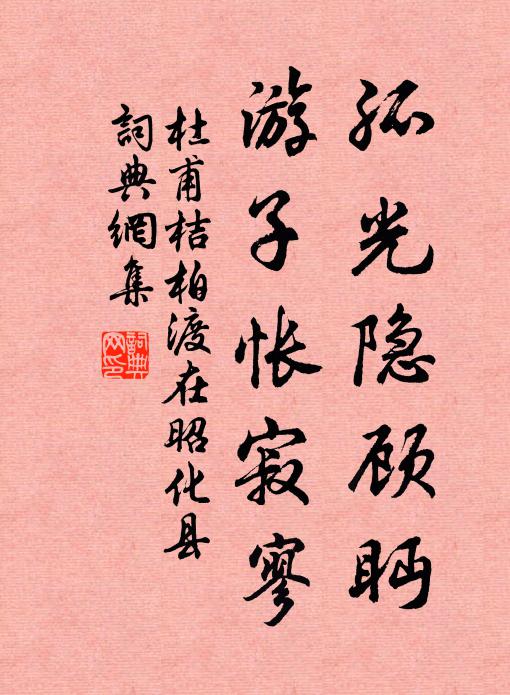 孤光隐顾眄
游子怅寂寥
杜甫桔柏渡在昭化县
詞典網集
詞典
网印